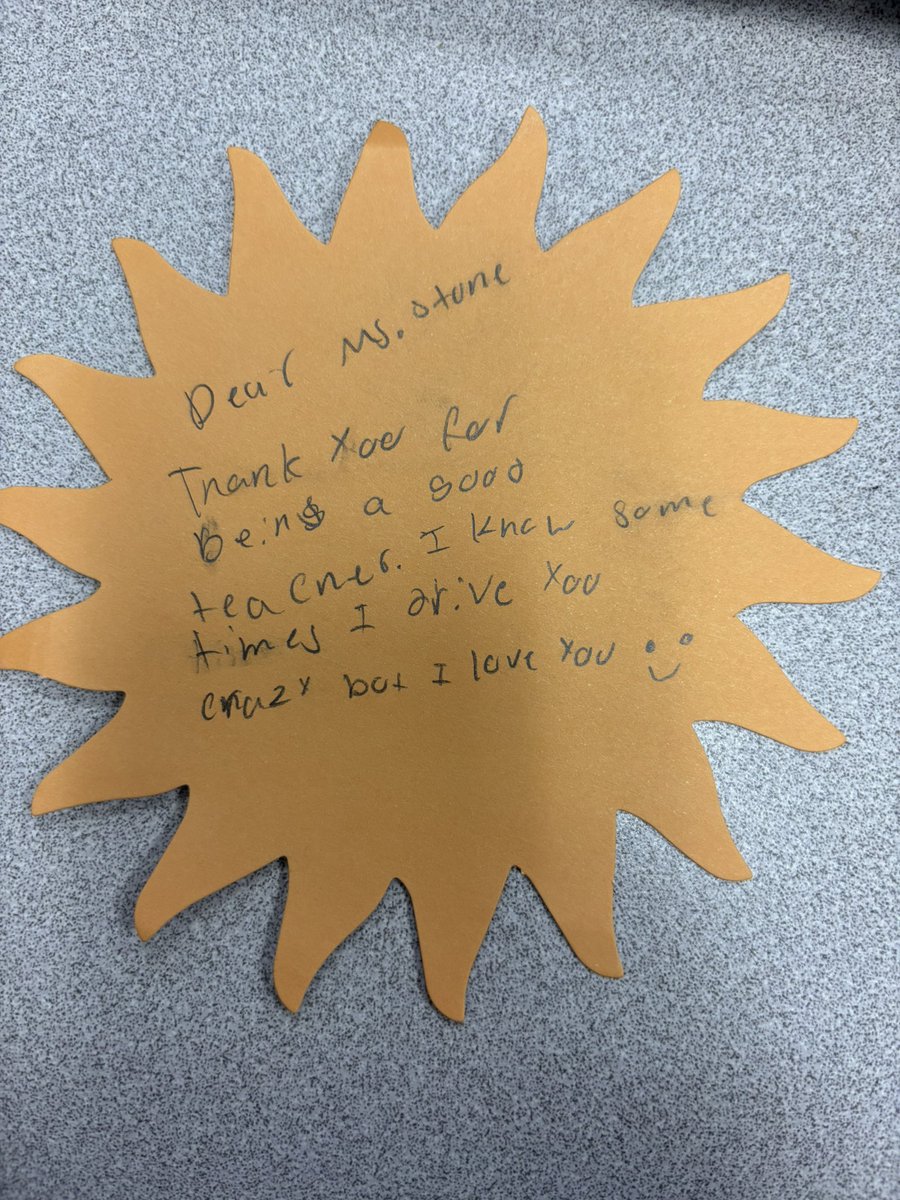 Dear Ms. Stone
Thank you for
Being a good
teacher. I know some
times I drive you
crazy but I love you